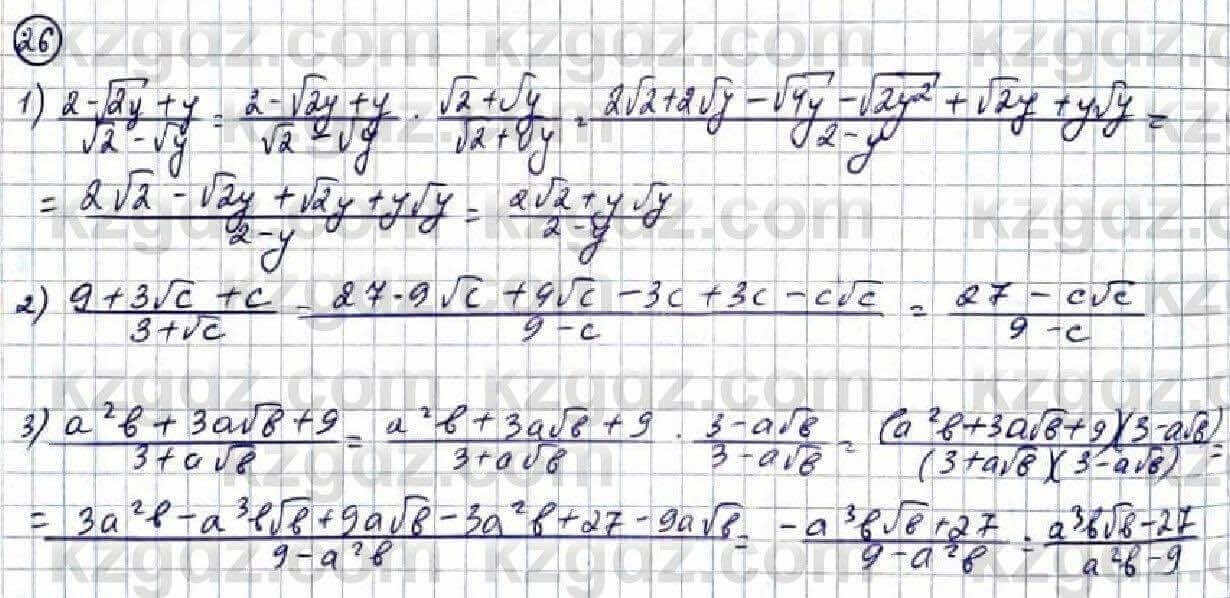 26
1) (2-√2y+y)/(√2-√y) = (2-√2y+y)/(√2-√y) · (√2+√y)/(√2+√y) = (2√2+2√y-√4y-√2y²+√2y+y√y)/(2-y) =
= (2√2-√2y+√2y+y√y)/(2-y) = (2√2+y√y)/(2-y)
2) (9+3√c+c)/(3+√c) = (27-9√c+9√c-3c+3c-c√c)/(9-c) = (27-c√c)/(9-c)
3) (a²b+3a√b+9)/(3+a√b) = (a²b+3a√b+9)/(3+a√b) · (3-a√b)/(3-a√b) = ((a²b+3a√b+9)(3-a√b))/((3+a√b)(3-a√b)) =
= (3a²b-a³b√b+9a√b-3a²b+27-9a√b)/(9-a²b) = (-a³b√b+27)/(9-a²b) = (a³b√b-27)/(a²b-9)
kzgdz.com kzgdz.com kzgdz.com